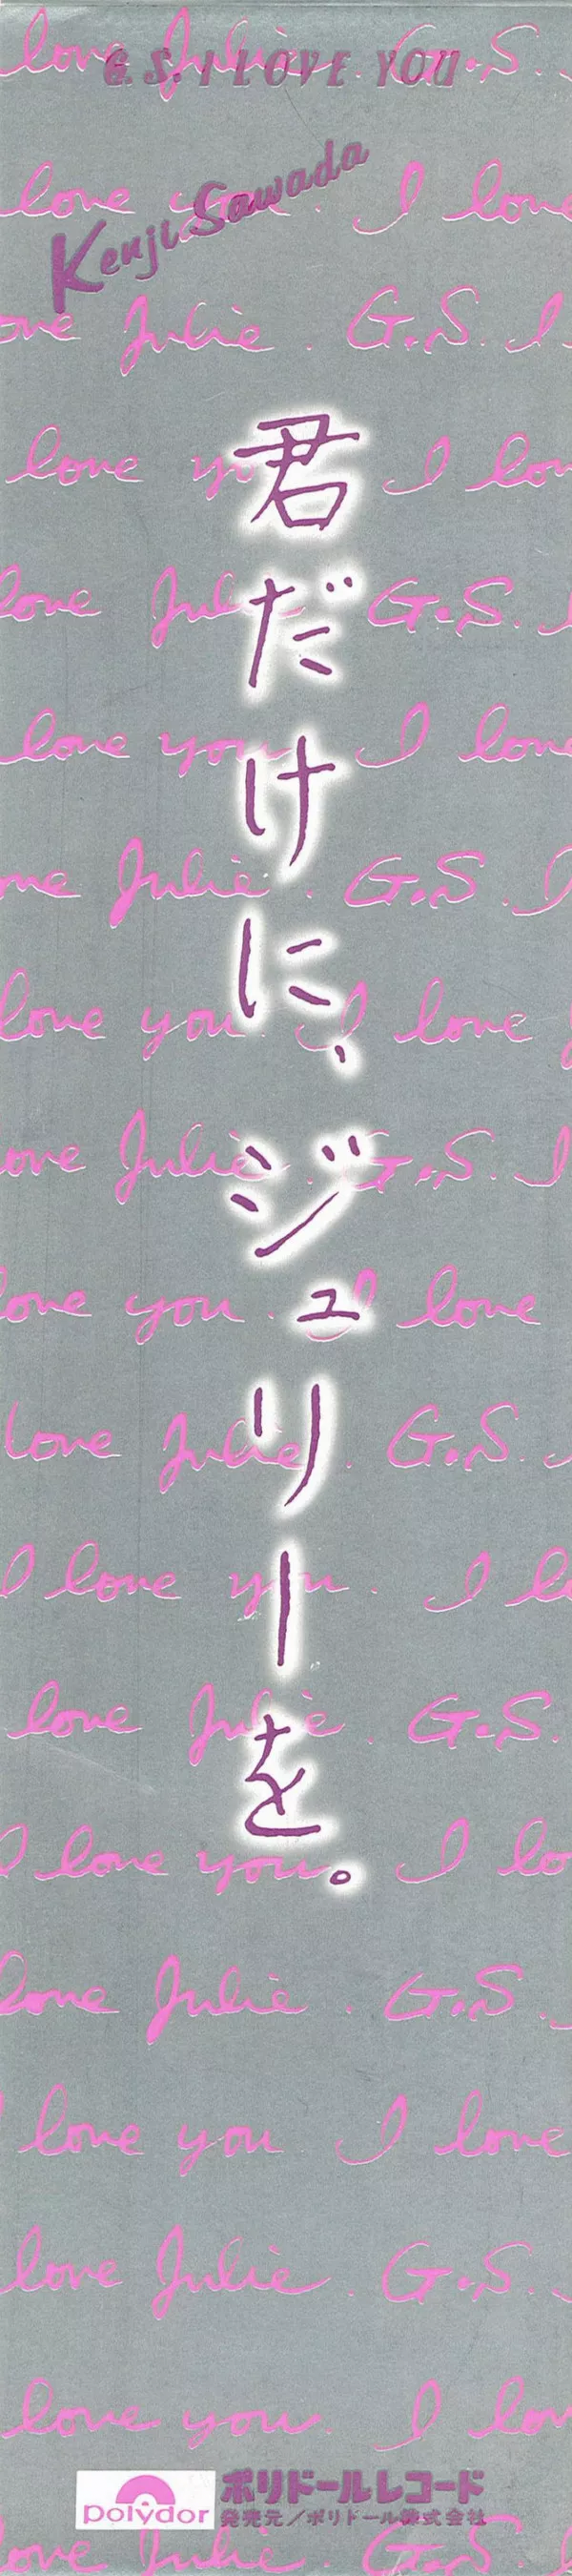 love Julie. G.S.
G.S. I LOVE YOU
love you. I love
Kenji Sawada
ove Julie. G.S. I
love yo I lov
love Jul G.S. I
love you I love
me Julie. G.S. I
love you I love
ove Julie G.S. I
love you. I love
love Julie. G.S.
I love you. I l
love Julie. G.S.
I love you. I lo
love Julie. G.S.
love you I love
love Julie. G.S.
love you. I lov
君だけに、ジュリーを。
polydor
ポリドールレコード
発売元／ポリドール株式会社
love Julie. G.S.